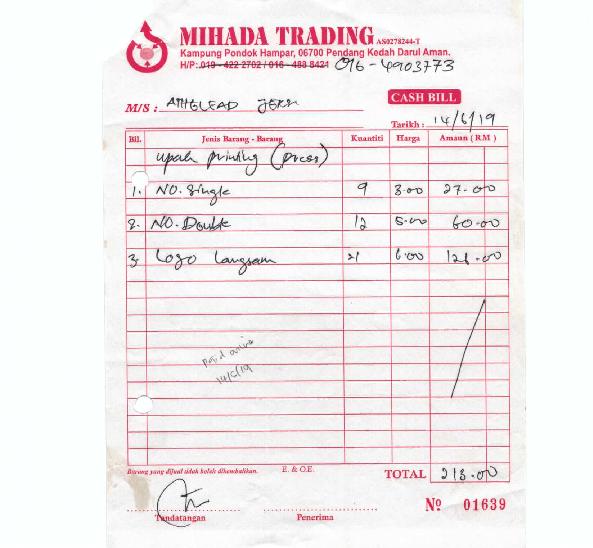 MIHADA TRADING AS0278244-T
Kampung Pondok Hampar, 06700 Pendang Kedah Darul Aman.
H/P: 019 - 422 2702 / 016 - 488 8421 016 - 4903773
CASH BILL
M/S : ATHLEAD JERSI
Tarikh : 14/6/19
Bil. Jenis Barang - Barang Kuantiti Harga Amaun ( RM )
upah printing (press)
1. NO. Single 9 3.00 27.00
2. NO. Double 12 5.00 60.00
3. Logo Langsam 21 6.00 126.00
Paid online
14/6/19
Barang yang dijual tidak boleh dikembalikan. E. & O.E. TOTAL 213.00
Tandatangan Penerima Nº 01639